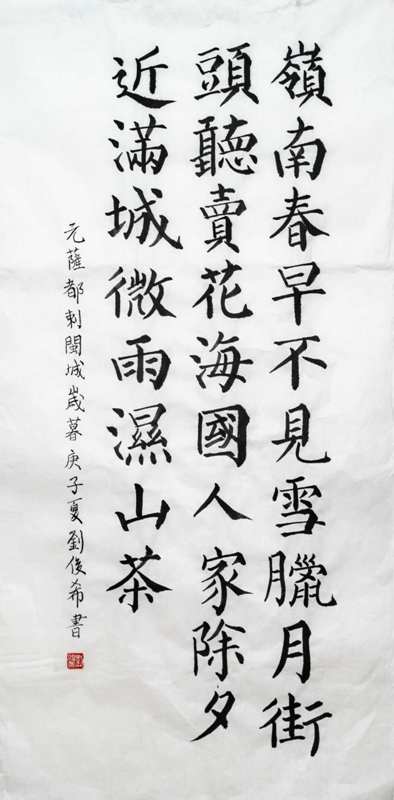 嶺南春早不見雪臘月街
頭聽賣花海國人家除夕
近滿城微雨濕山茶
元薩都剌閩城歲暮庚子夏劉俊希書